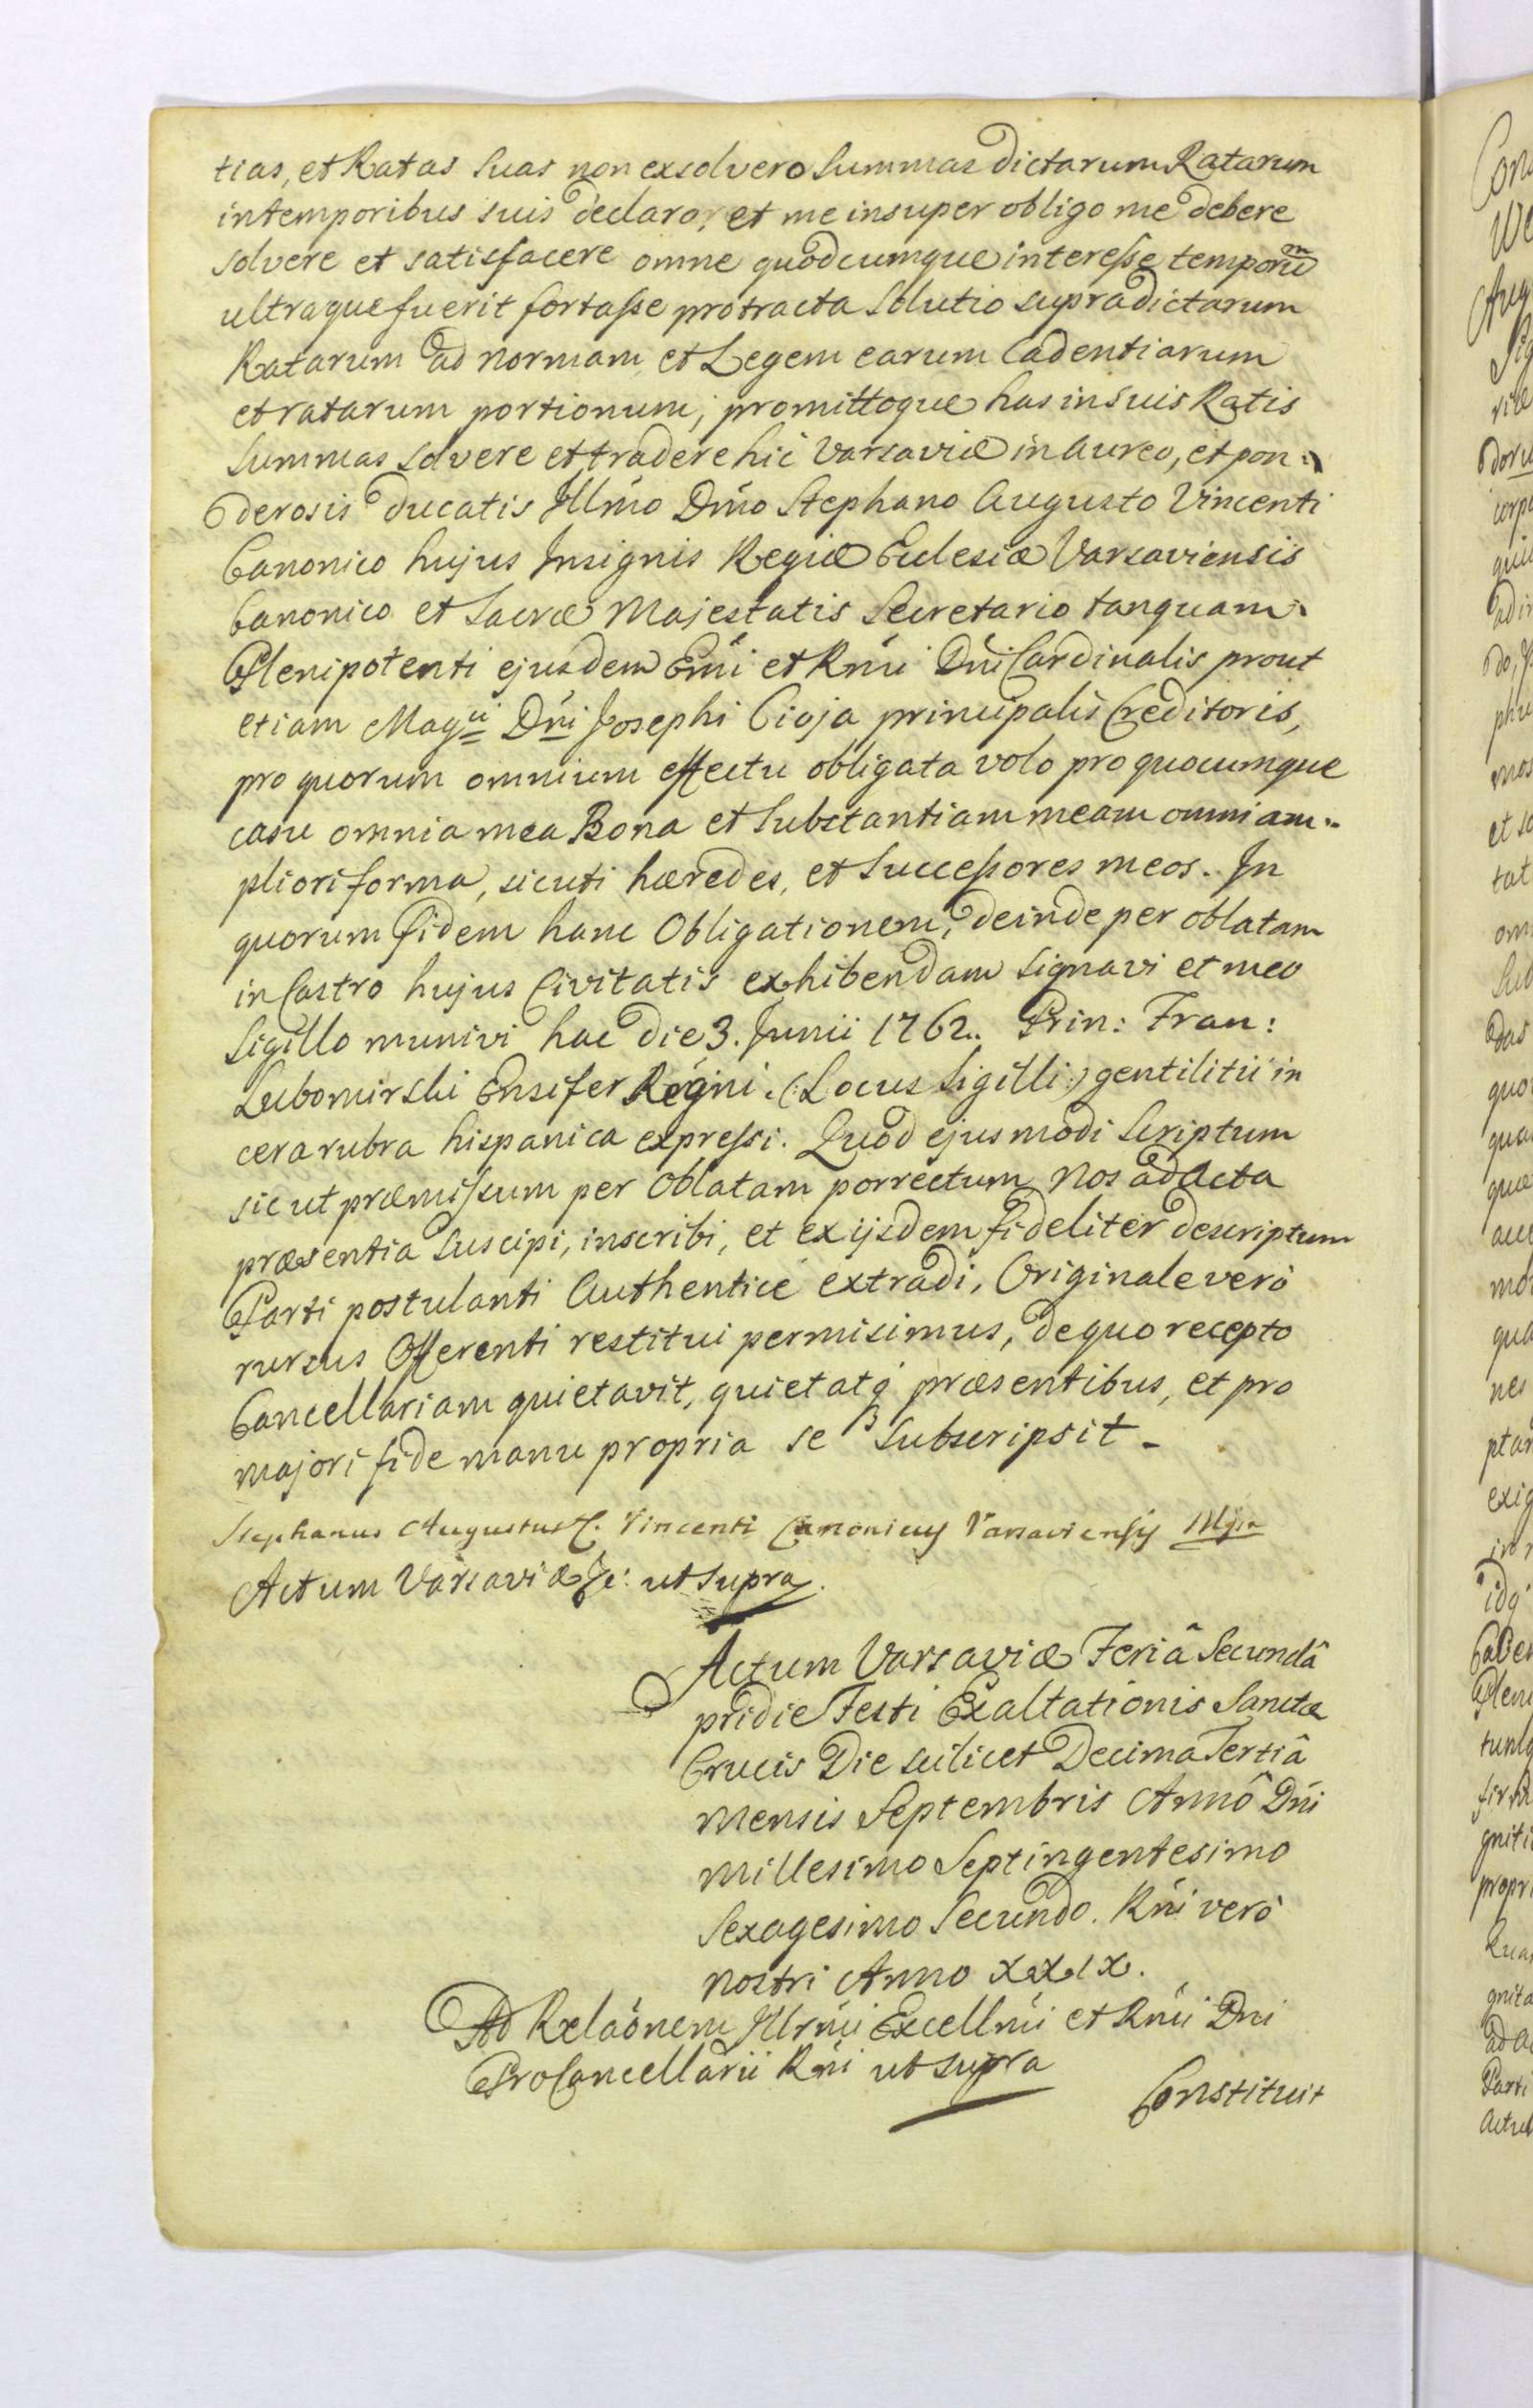 tias, et Ratas suas non exsolvero Summas dictarum Ratarum
in temporibus suis declaro, et me insuper obligo me debere
solvere et satisfacere omne quodcumque interesse temporũ
ultraque fuerit fortasse protracta solutio supradictarum
Ratarum ad normam et Legem earum Cadentiarum
et ratarum portionum; promittoque has in suis Ratis
Summas solvere et tradere hic Varsaviæ in aureo, et pon:
derosis ducatis Illmo Dno Stephano Augusto Vincenti
Canonico hujus Insignis Regiæ Eclesiæ Varsaviensis
Canonico et Sacræ Majestatis Secretario tanquam
Plenipotenti ejusdem Emi et Rmi Dni Cardinalis prout
etiam Magci Dni Josephi Cioja principalis Creditoris,
pro quorum omnium effectu obligata volo pro quocumque
casu omnia mea Bona et Substantiam meam omni am:
pliori forma, sicuti hæredes, et Successores meos. In
quorum fidem hanc Obligationem, deinde per oblatam
in Castro hujus Civitatis exhibendam signavi et meo
Sigillo munivi hac die 3. Junii 1762. Prin: Fran:
Lubomirski Ensifer Regni. (:Locus Sigilli:) gentilitii in
cera rubra hispanica expressi. Quod ejusmodi Scriptum
sicut præmissum per Oblatam porrectum Nos ad Acta
præsentia suscipi, inscribi, et ex ijsdem fideliter descriptum
Parti postulanti Authenticè extradi, Originale verò
rursus Offerenti restitui permisimus, de quo recepto
Cancellariam quietavit, quietatq præsentibus, et pro
majori fide manu propria se subscripsit.
Stephanus Augustus C. Vincenti Canonicus Varsaviensis Mpr
Actum Varsaviæ &c: ut supra.
Actum Varsaviæ Feriâ Secundâ
pridie Festi Exaltationis Sanctæ
Crucis Die scilicet Decima Tertiâ
Mensis Septembris Annô Dni
Millesimo Septingentesimo
Sexagesimo Secundo. Rni verò
nostri Anno XXIX.
Ad Relaonem Illrmi Excellmi et Rmi Dni
ProCancellarii Rni ut supra
Constituit